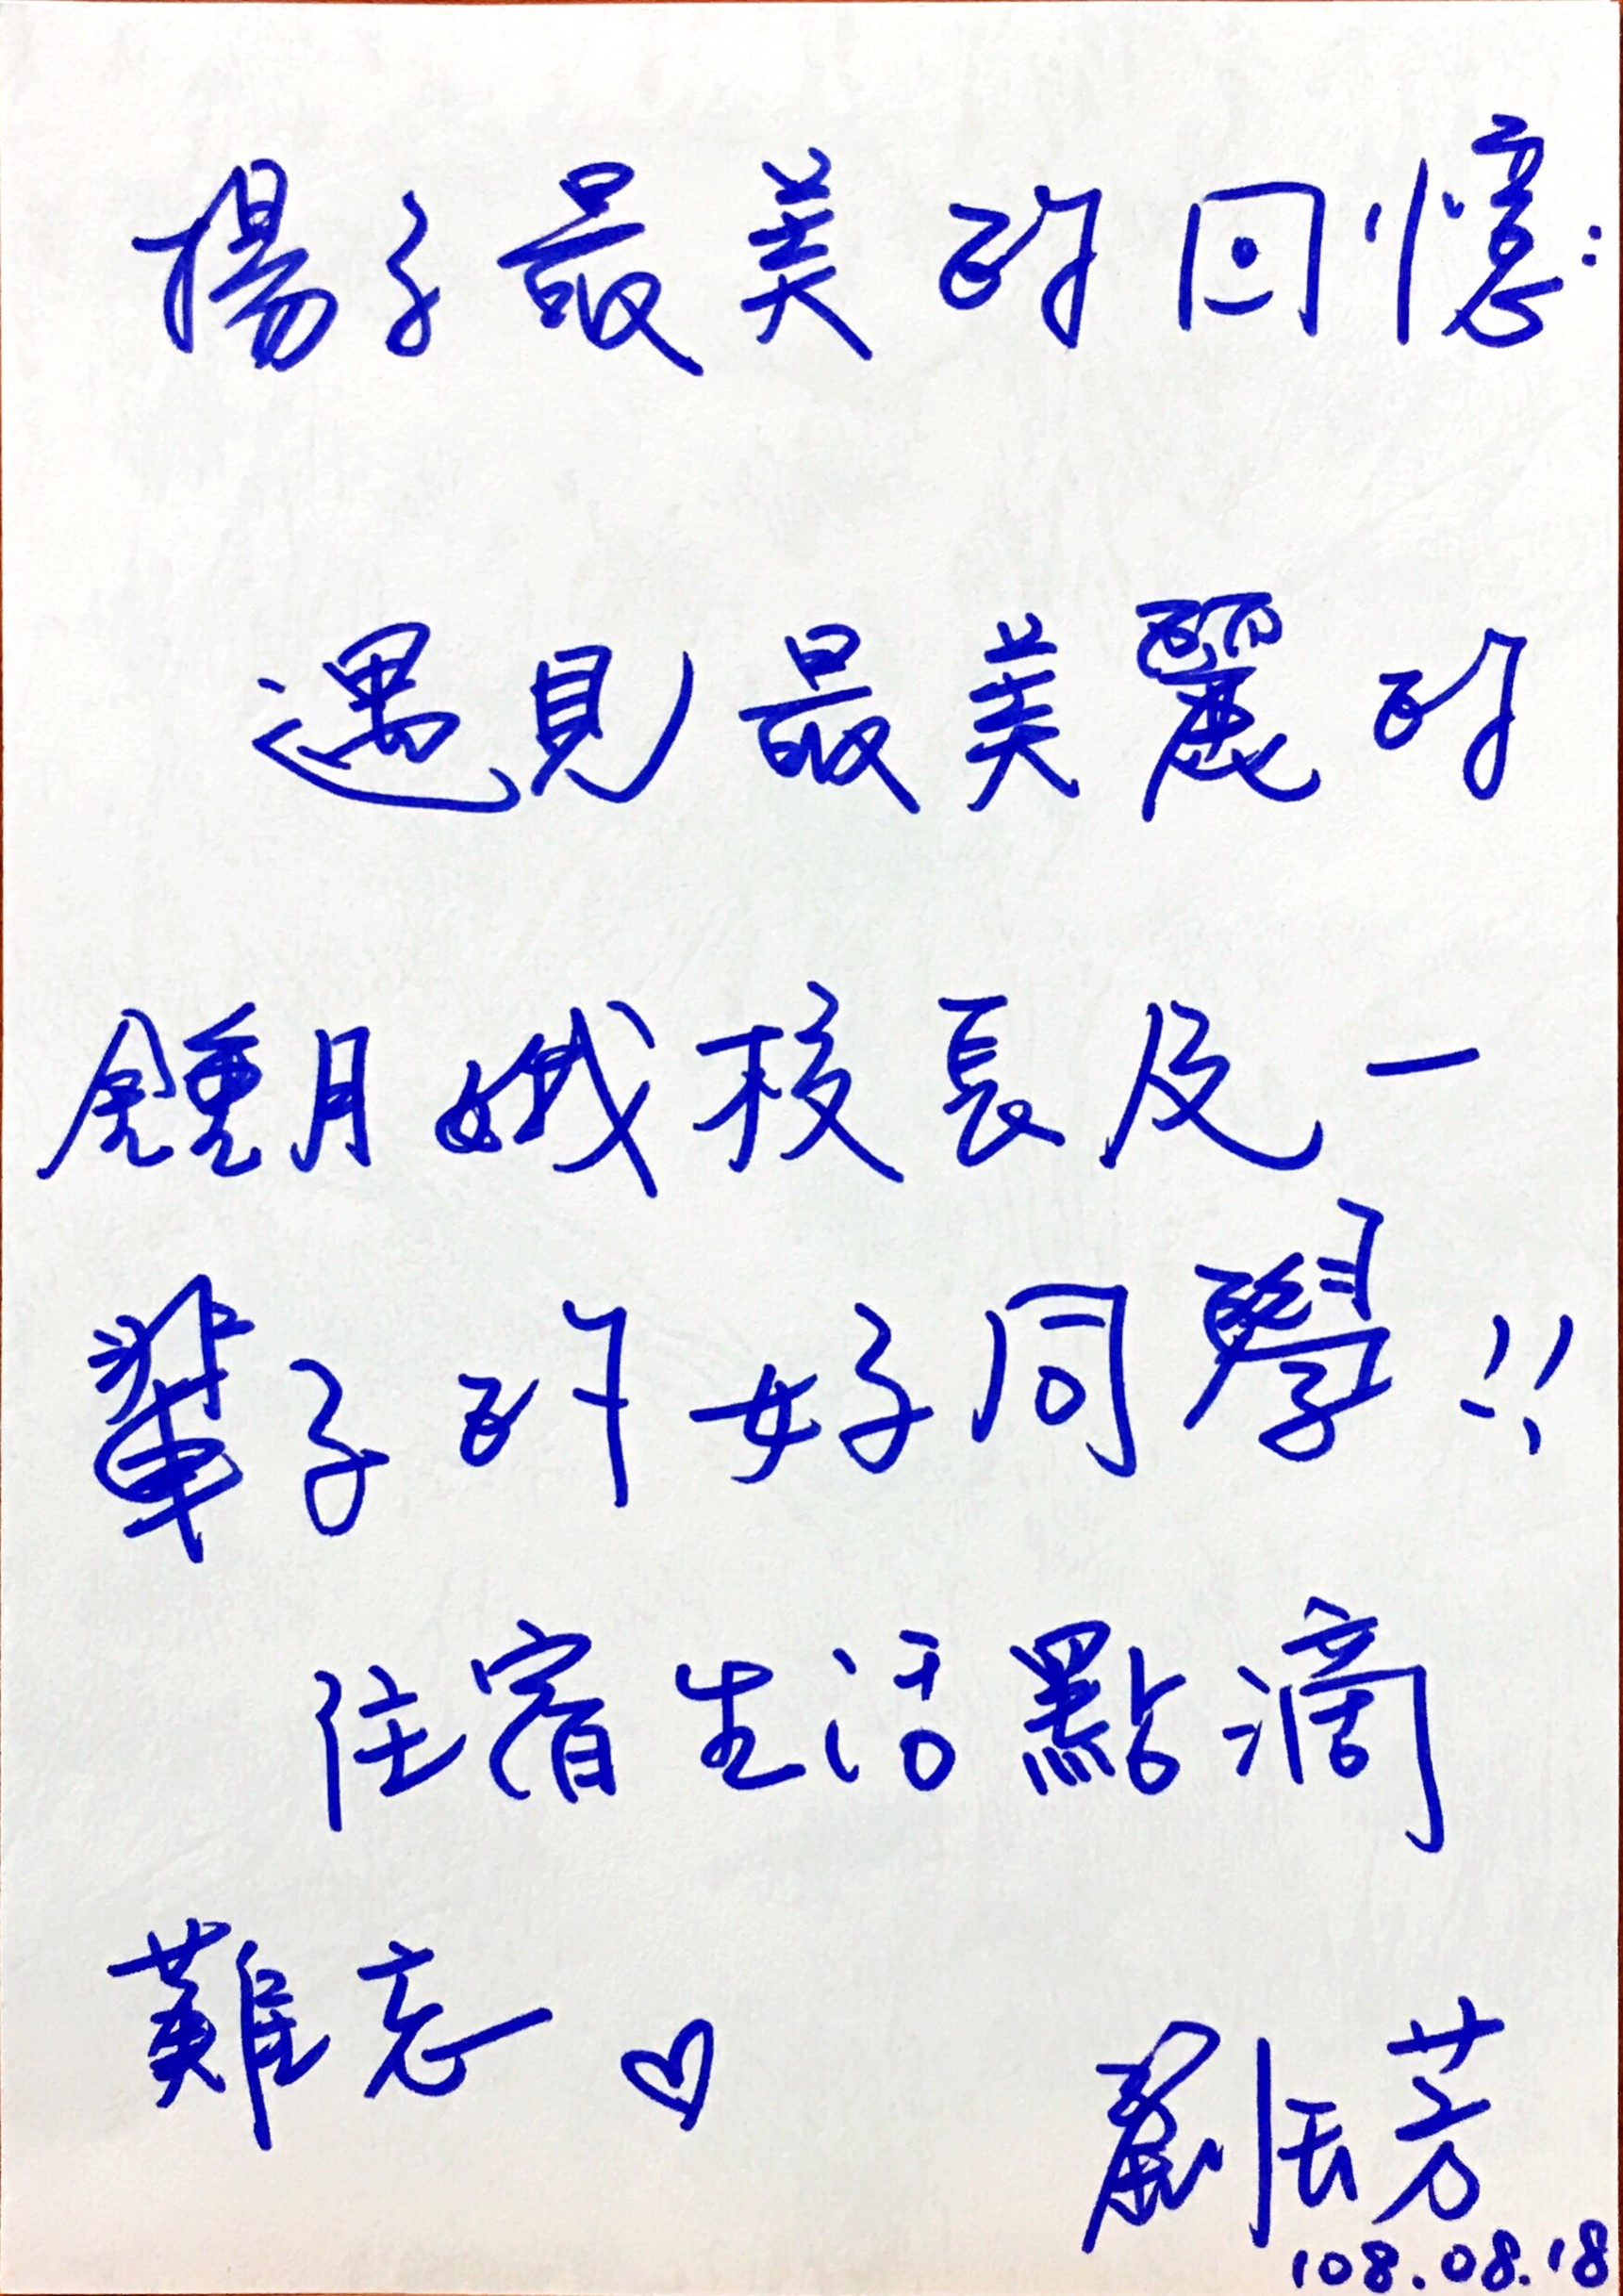 揚子最美的回憶:
遇見最美麗的
鍾月娥校長及一
輩子的好同學!!
住宿生活點滴
難忘♡
芳
108.08.18